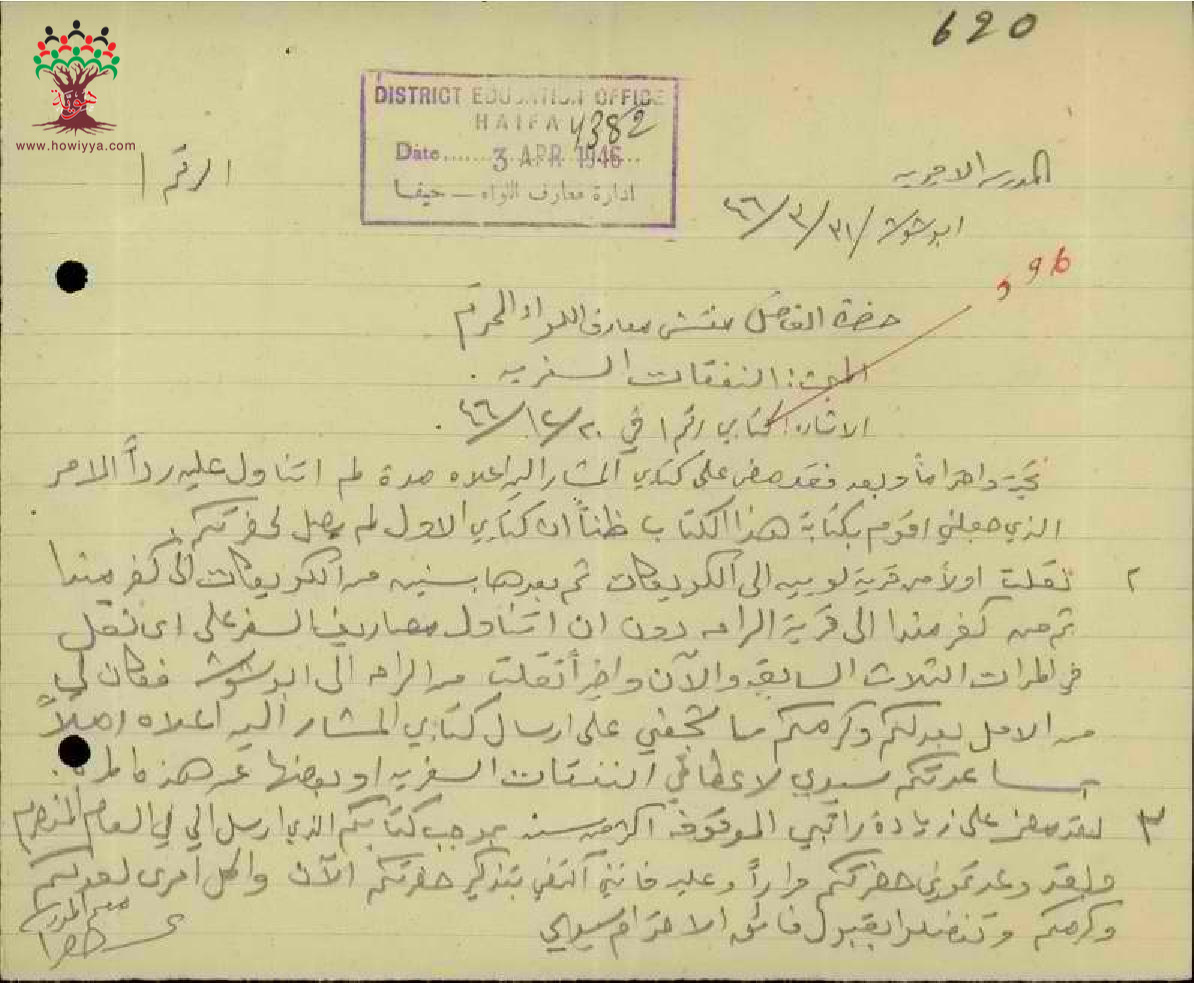 620
www.howiyya.com
DISTRICT EDUCATION OFFICE
HAIFA 4382
Date..... 3 APR 1946
ادارة معارف اللواء — حيفا
الرقم ١
المدرسة الاميرية
ابو شوشة / ٣١ / ٣ / ٤٦
96
حضرة الفاضل مفتش معارف اللواء المحترم
المبحث: النفقات السفرية.
الاشارة: كتابي رقم ١ في ٢٠ / ١٢ /
تحية واحتراماً وبعد فقد مضى على كتابي المشار اليه اعلاه مدة لم اتناول عليه رداً الامر
الذي جعلني اقوم بكتابة هذا الكتاب ظناً ان كتابي الاول لم يصل لحضرتكم.
٢ نقلت اولاً من قرية لوبيه الى الكويكات ثم بعدها بسنين من الكويكات الى كفر مندا
ثم من كفر مندا الى قرية الرامه دون ان اتناول مصاريف السفر على اي نقل
في المرات الثلاث السابقة والآن واخيراً نقلت من الرامه الى ابو شوشة فكان لي
من الامل بعدلكم وكرمكم ما شجعني على ارسال كتابي المشار اليه اعلاه املاً
بمساعدتكم سيدي لاعطائي النفقات السفرية او بعضها عن هذه المرة.
٣ لقد مضى على زيادة راتبي الموقوفة اكثر من سنة بموجب كتابكم الذي ارسل الي في العام المنصرم
ولقد وعدتموني حضرتكم مراراً وعليه فانني اكتفي بتذكير حضرتكم الآن واكل امري لعدلكم
وكرمكم وتفضلوا بقبول فائق الاحترام سيدي
معلم المدرسة